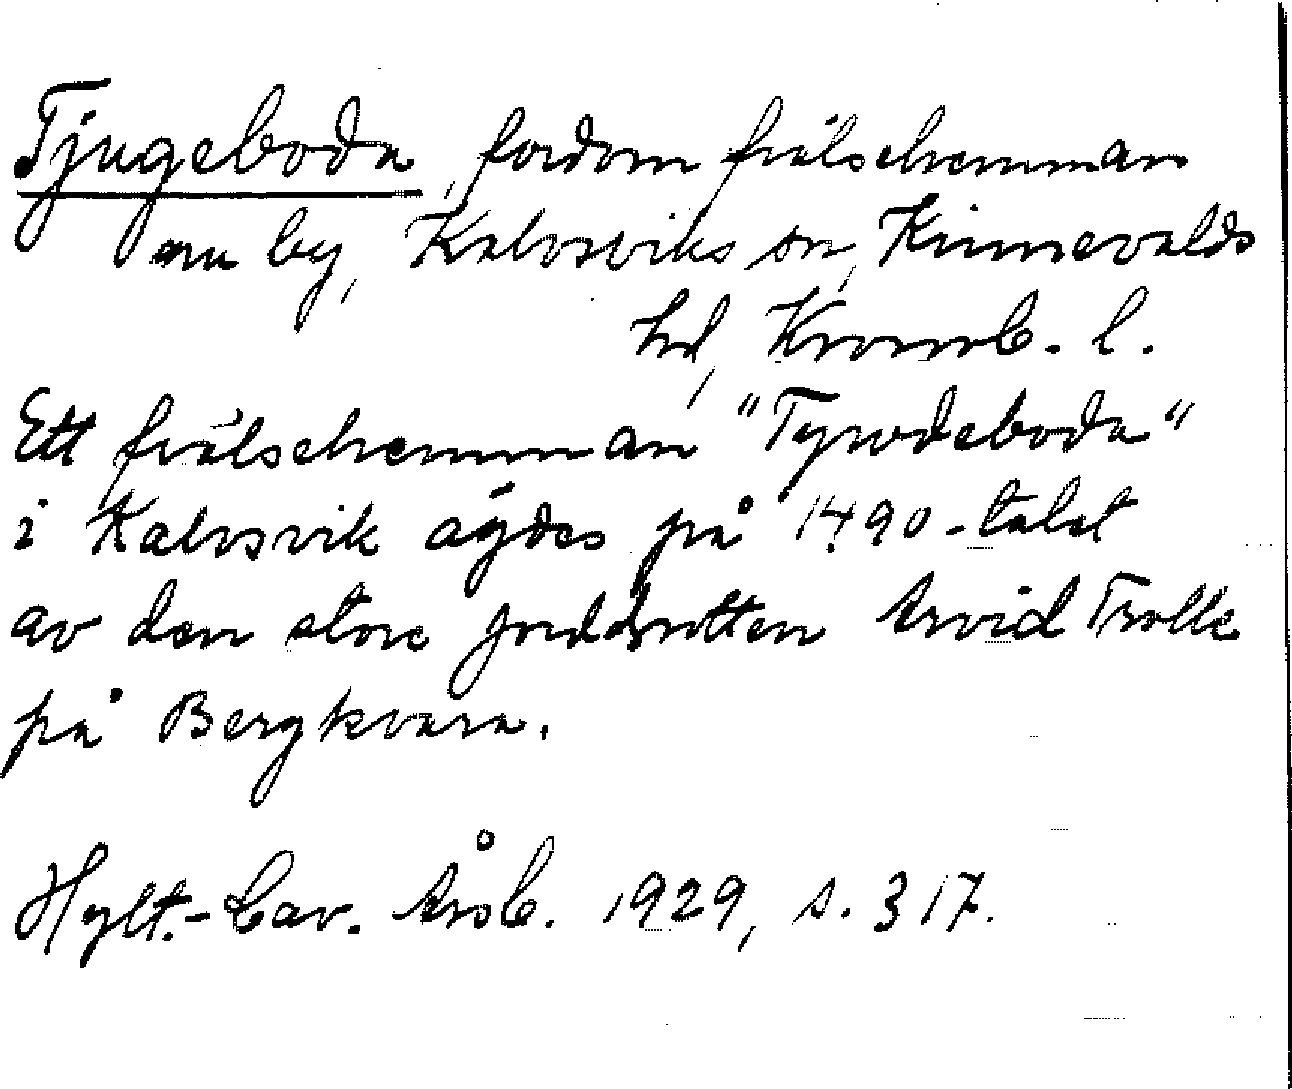 Tjugeboda, fordom frälsehemman
nu by, Kalvsviks sn, Kinnevalds
hd, Kronob. l.
Ett frälsehemman "Tyrodeboda"
i Kalvsvik ägdes på 1490-talet
av den store jorddrotten Arvid Trolle
på Bergkvara.
Hylt.-Cav. Årsb. 1929, s. 317.